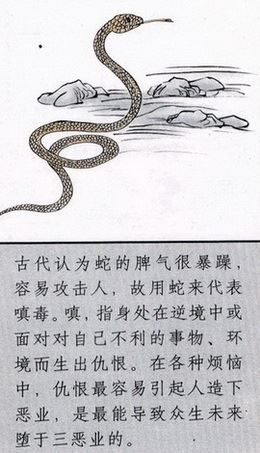 古代认为蛇的脾气很暴躁，
容易攻击人，故用蛇来代表
嗔毒。嗔，指身处在逆境中或
面对对自己不利的事物、环
境而生出仇恨。在各种烦恼
中，仇恨最容易引起人造下
恶业，是最能导致众生未来
堕于三恶业的。